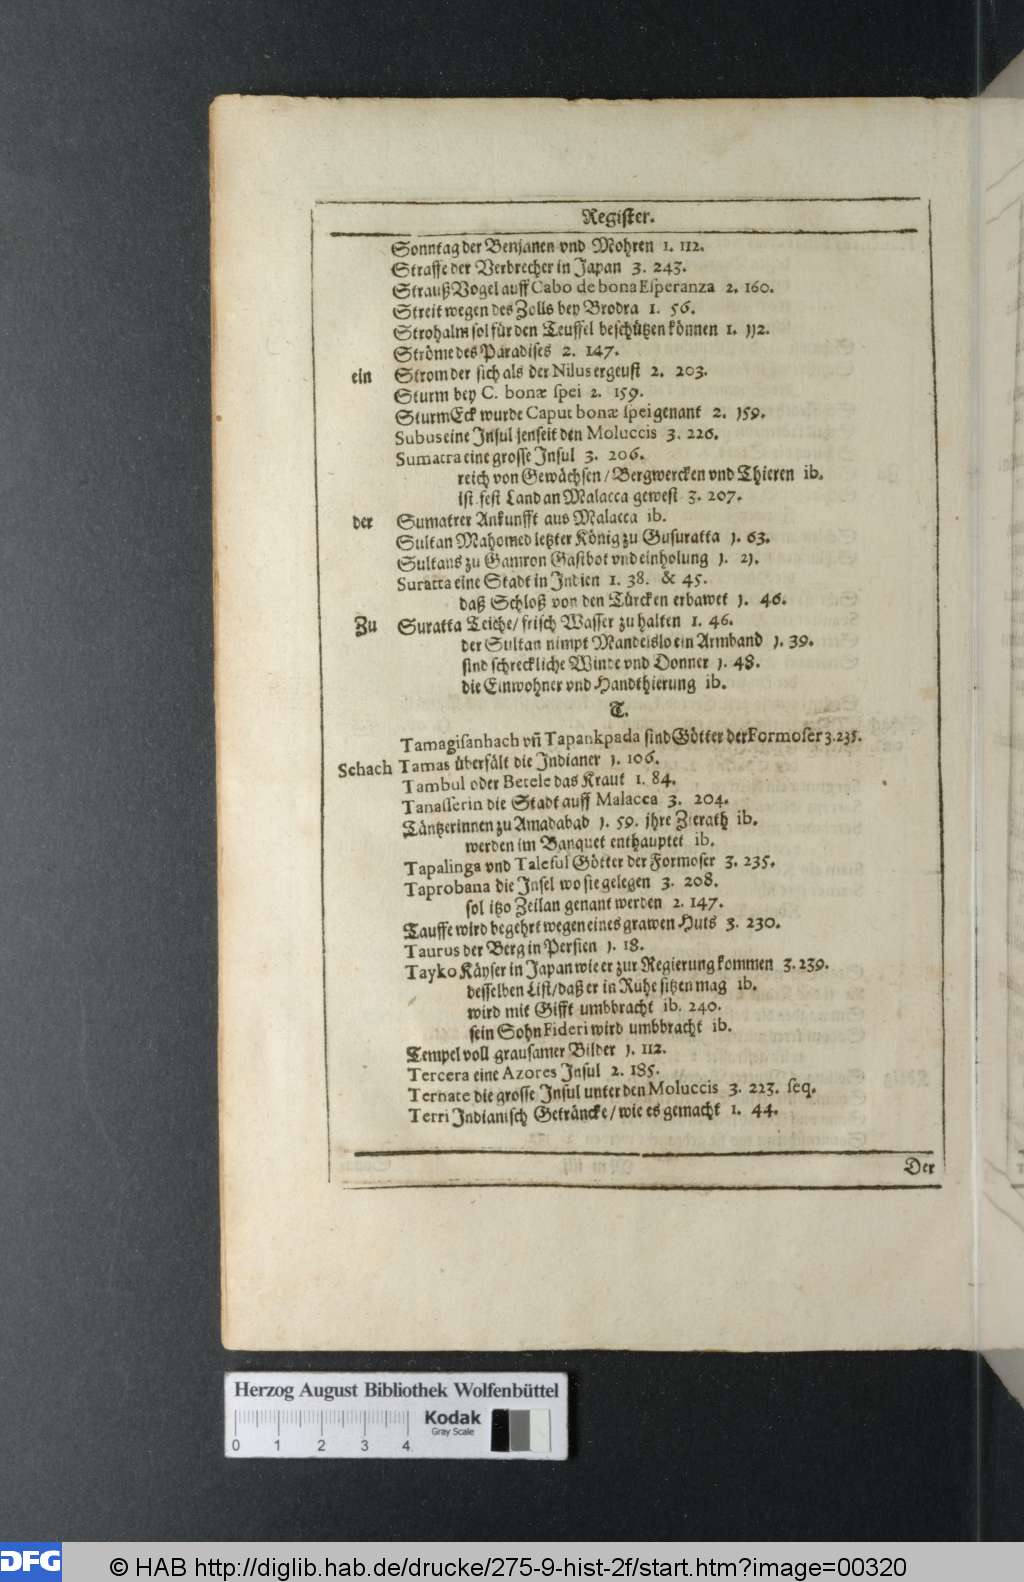 Register.
Sonntag der Benjanen vnd Mohren 1. 112.
Strasse der Verbrecher in Japan 3. 243.
Strauß Vogel auff Cabo de bona Esperanza 2. 160.
Streit wegen des Zolls bey Brodra 1. 56.
Strohalm sol für den Teuffel beschützen können 1. 112.
Ströme des Paradises 2. 147.
ein Strom der sich als der Nilus ergeust 2. 203.
Sturm bey C. bonæ spei 2. 159.
Sturm Eck wurde Caput bonæ spei genant 2. 159.
Subus eine Insul jenseit den Moluccis 3. 226.
Sumatra eine grosse Insul 3. 206.
reich von Gewächsen / Bergwercken vnd Thieren ib.
ist fest Land an Malacca gewest 3. 207.
der Sumatrer Ankunfft aus Malacca ib.
Sultan Mahomed letzter König zu Gusuratta 1. 63.
Sultans zu Gamron Gastbot vnd einholung 1. 21.
Suratta eine Stadt in Indien 1. 38. & 45.
daß Schloß von den Türcken erbawet 1. 46.
Zu Suratta Teiche / frisch Wasser zu halten 1. 46.
der Sultan nimpt Mandelslo ein Armband 1. 39.
sind schreckliche Winde vnd Donner 1. 48.
die Einwohner vnd Handthierung ib.
T.
Tamagisanhach vñ Tapankpada sind Götter der Formoser 3. 235.
Schach Tamas überfält die Indianer 1. 106.
Tambul oder Betele das Kraut 1. 84.
Tanasserin die Stadt auff Malacca 3. 204.
Täntzerinnen zu Amadabad 1. 59. jhre Zierath ib.
werden im Banquet enthauptet ib.
Tapalinga vnd Taleful Götter der Formoser 3. 235.
Taprobana die Insel wo sie gelegen 3. 208.
sol itzo Zeilan genant werden 2. 147.
Tauffe wird begehrt wegen eines grawen Huts 3. 230.
Taurus der Berg in Persien 1. 18.
Tayko Käyser in Japan wie er zur Regierung kommen 3. 239.
desselben List / daß er in Ruhe sitzen mag ib.
wird mit Gifft umbbracht ib. 240.
sein Sohn Fideri wird umbbracht ib.
Tempel voll grausamer Bilder 1. 112.
Tercera eine Azores Insul 2. 185.
Ternate die grosse Insul unter den Moluccis 3. 223. seq.
Terri Indianisch Geträncke / wie es gemacht 1. 44.
Der
Herzog August Bibliothek Wolfenbüttel
Kodak
Gray Scale
0 1 2 3 4
DFG
© HAB http://diglib.hab.de/drucke/275-9-hist-2f/start.htm?image=00320